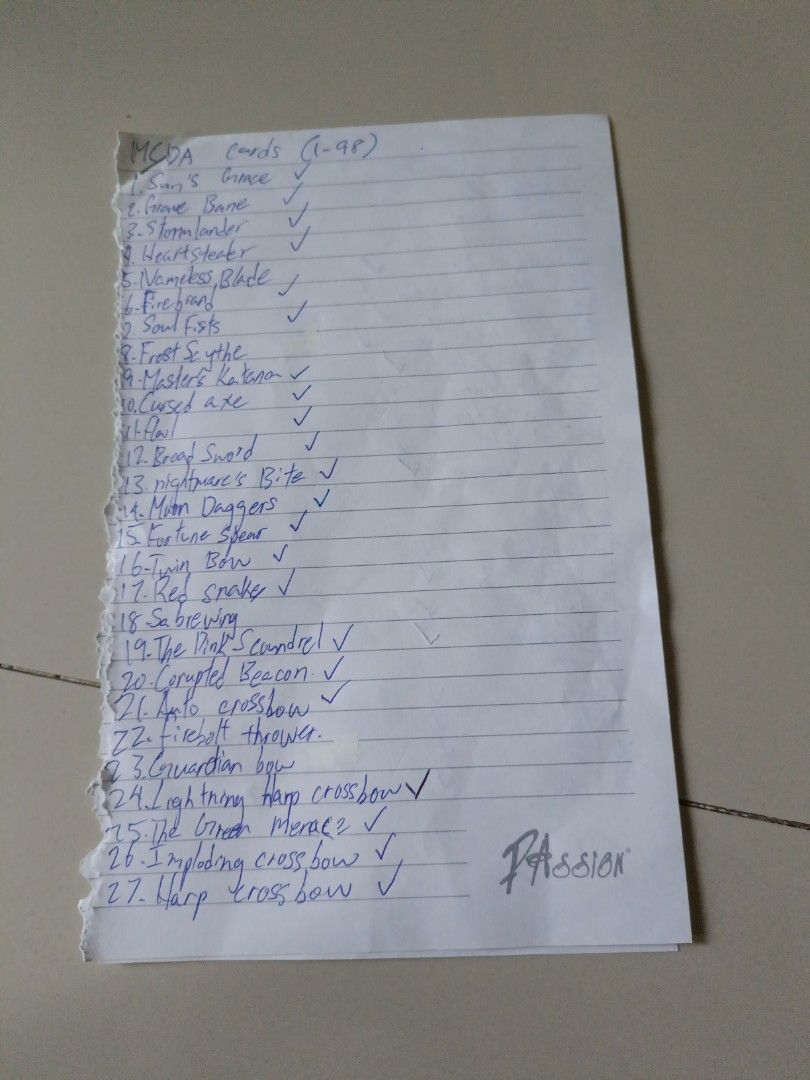 MCDA cards (1-98)
1. Sun's Grace ✓
2. Grave Bane ✓
3. Stormlander ✓
4. Heartstealer ✓
5. Nameless Blade
6. Firebrand ✓
7. Soul Fists ✓
8. Frost Scythe
9. Master's Katana ✓
10. Cursed axe ✓
11. Flail ✓
12. Broad Sword ✓
13. nightmare's Bite ✓
14. Moon Daggers ✓
15. Fortune spear ✓
16. Twin Bow ✓
17. Red snake ✓
18. Sabrewing
19. The Pink Scoundrel ✓
20. Corupted Beacon. ✓
21. Auto crossbow ✓
22. Firebolt thrower.
23. Guardian bow
24. Lightning Harp crossbow ✓
25. The Green Menace ✓
26. Imploding crossbow ✓
27. Harp crossbow ✓
PAssion